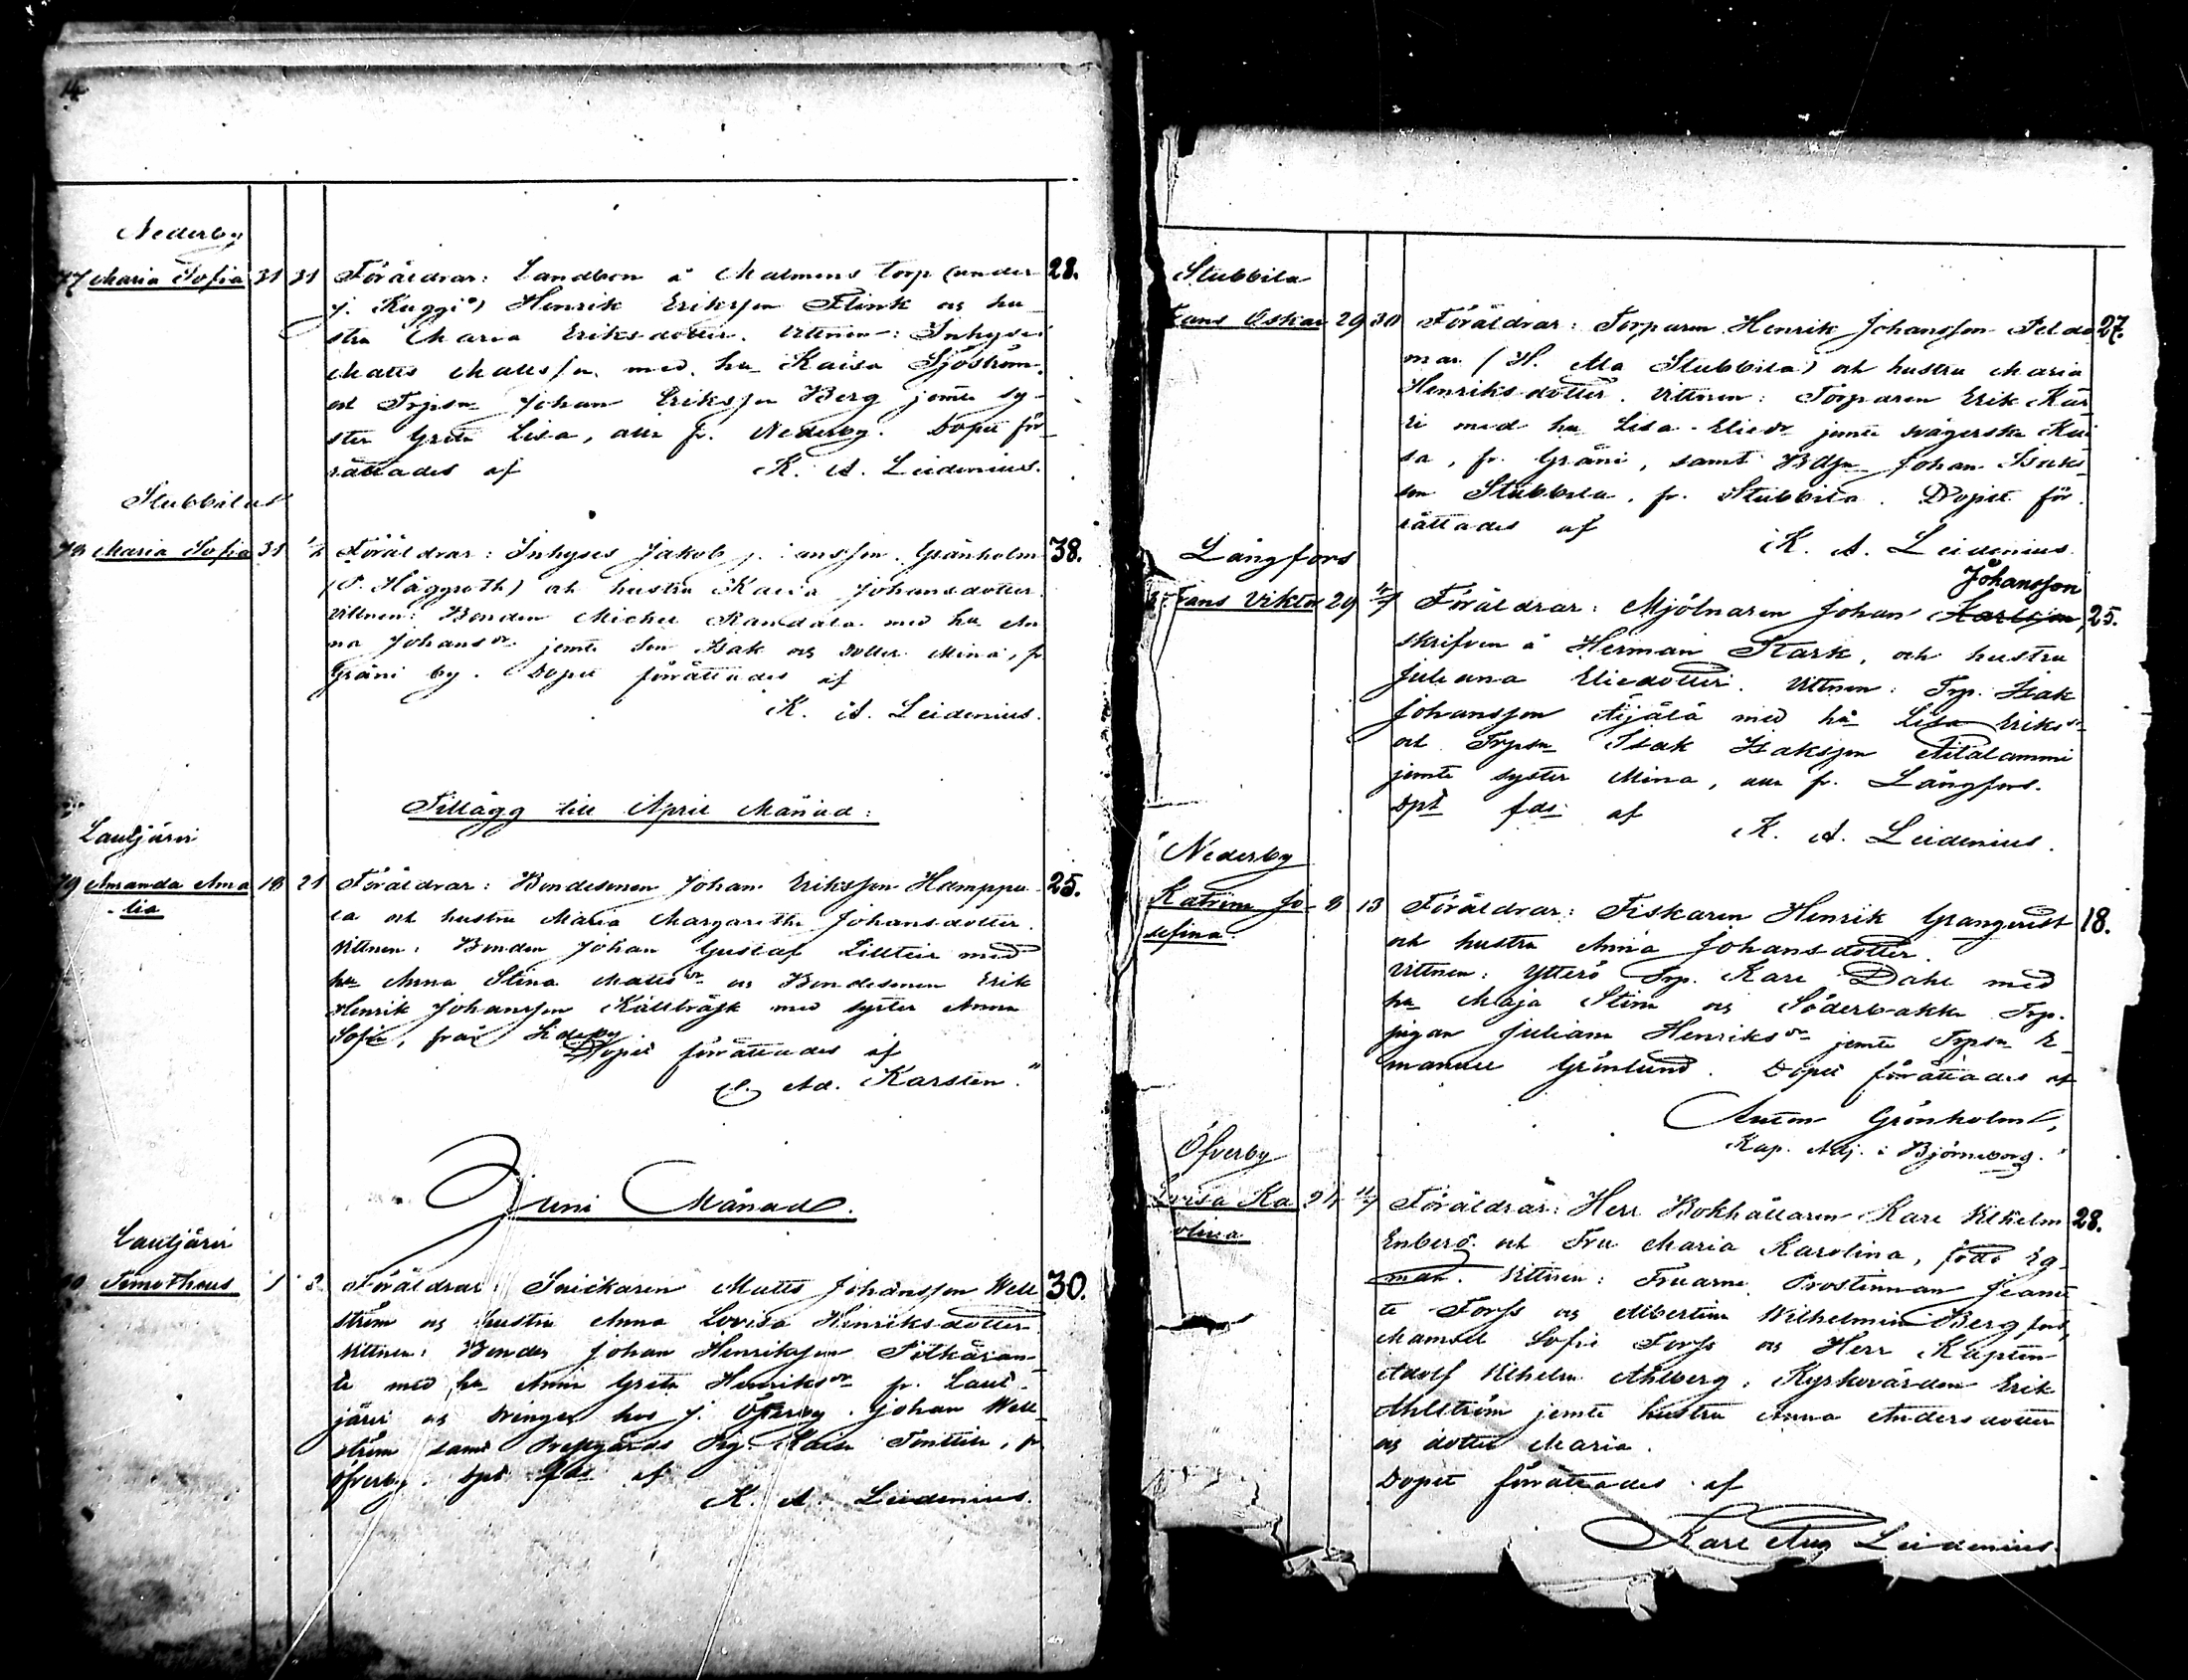 14
Nederby
77 Maria Sofia 31 31 Föräldrar: Landbon å Malmens torp (under 28.
j. Kuggi) Henrik Eriksson Flink och hu-
stru Maria Eriksdotter. Vittnen: Inhyses
Matts Mattsson med hu Kaisa Sjöström
och Trpsn Johan Eriksson Berg jemte sy-
ster Greta Lisa, alla fr. Nederby. Dopet för-
rättades af K. A. Leidenius.
Stubbila
78 Maria Sofia 31 1/6 Föräldrar: Inhyses Jakob Johansson Granholm 38.
(P. Häggroth) och hustru Kaisa Johansdotter.
Vittnen: Bonden Michel Randala med hu An-
na Johansdr jemte son Isak och dotter Mina, fr
Gräni by. Dopet förrättades af
K. A. Leidenius.
Tillägg till April Månad:
Lautjärvi
79 Amanda Ama 18 21 Föräldrar: Bondesonen Johan Eriksson Hamppu- 25.
-lia
la och hustru Maria Margaretha Johansdotter.
Vittnen: Bonden Johan Gustaf Lillteir med
hu Anna Stina Mattsdr och Bondesonen Erik
Henrik Johansson Källträsk med syster Anna
Sofia, från Sideby.
Dopet förrättades af
Ad. Karsten."
Juni Månad.
Lautjärvi
80 Timotheus 1 2 Föräldrar: Snickaren Matts Johansson Well- 30.
ström och hustru Anna Lovisa Henriksdotter
Vittnen: Bonden Johan Henriksson Pitkäran-
ta med hu Anna Greta Henriksdr fr. Laut-
järvi och drängen hos j. Öfverby Johan Well-
ström samt Prestgårds Pig. Kaisa Tonttila, fr
Öfverby. Dpt fds af
K. A. Leidenius.
Stubbila
Frans Oskar 29 30 Föräldrar: Torparen Henrik Johansson Feldt- 27.
man (H. Ala Stubbila) och hustru Maria
Henriksdotter. Vittnen: Torparen Erik Kär-
ri med hu Lisa Eliedr jemte svägerska Kai-
sa, fr. Gräni, samt Bdsn Johan Isaks-
son Stubbila, fr. Stubbila. Dopet för-
rättades af
K. A. Leidenius.
Långfors
Johansson
Frans Viktor 29 4/7 Föräldrar: Mjölnaren Johan Karlsson, 25.
skrifven å Herman Stark, och hustru
Juliana Eliedotter. Vittnen: Trp. Isak
Johansson Äijälä med hu Lisa Eriksdr
och Trpsn Isak Isaksson Aitalammi
jemte syster Mina, alla fr. Långfors.
Dpt fds af
K. A. Leidenius.
"Nederby
Katrina Jo- 8 13 Föräldrar: Fiskaren Henrik Granqvist 18.
sefina.
och hustru Anna Johansdotter.
Vittnen: Ytterö Trp. Karl Dahl med
hu Maja Stina och Söderbakka Trp.
pigan Juliana Henriksdr jemte Trpsn E-
manuel Grönlund. Dopet förrättades af
Anton Grönholm,
Kap. Adj. i Björneborg."
Öfverby
Lovisa Ka 24 11/7 Föräldrar: Herr Bokhållaren Karl Vilhelm 28.
rolina
Enberg och Fru Maria Karolina, född Eg-
man. Vittnen: Fruarne Prostinnan Jeanet-
te Forss och Albertina Wilhelmina Bergfors,
Mamsell Sofie Forss och Herr Kapten
Adolf Vilhelm Ahlberg, Kyrkovärden Erik
Ahlström jemte hustru Anna Andersdotter
och dotter Maria.
Dopet förrättades af
Karl Aug Leidenius.